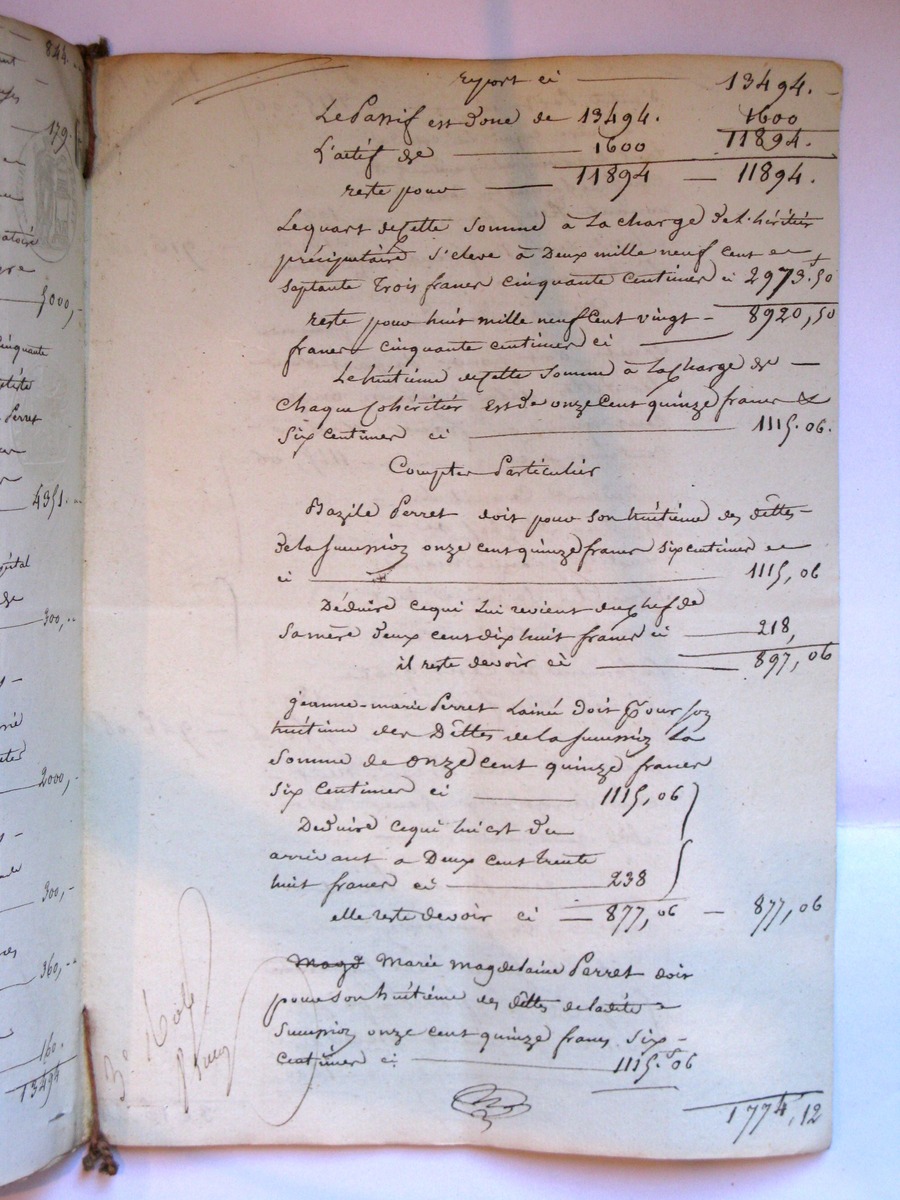 844.
179.
5000,-
cinquante
Perret
4351.
300,..
2000,-
300,-
360,-
160.
13494
Report ci 13494.
Le Passif est donc de 13494. 1600
L'actif de 1600 11894.
reste pour 11894 — 11894.
Le quart de cette somme à la charge de l'héritier
précipuitaire s'eleve à Deux mille neuf cent et
septante trois francs cinquante centimes ci 2973.50
reste pour huit mille neuf cent vingt - 8920,50
francs cinquante centimes ci
Le huitième de cette somme à la charge de
chaque cohéritier est de onze cent quinze francs &
six centimes ci 1115.06.
Comptes Particuliers
Bazile Perret doit pour son huitième des dêttes
de la succession onze cent quinze francs six centimes
ci 1115,06
Déduire ce qui lui revient du chef de
sa mère deux cent dix huit francs ci 218,
il reste devoir ci 897,06
jeanne-marie Perret Lainée doit pour son
huitième des Dêttes de la succession La
somme de onze cent quinze francs
six centimes ci 1115,06
Deduire ce qui lui est du
arrivant a Deux cent trente
huit francs ci 238
elle reste devoir ci — 877,06 — 877,06
Magd Marie magdelaine Perret doit
pour son huitième des dêttes de ladite
succession onze cent quinze francs six
centimes ci 1115.06
1774,12